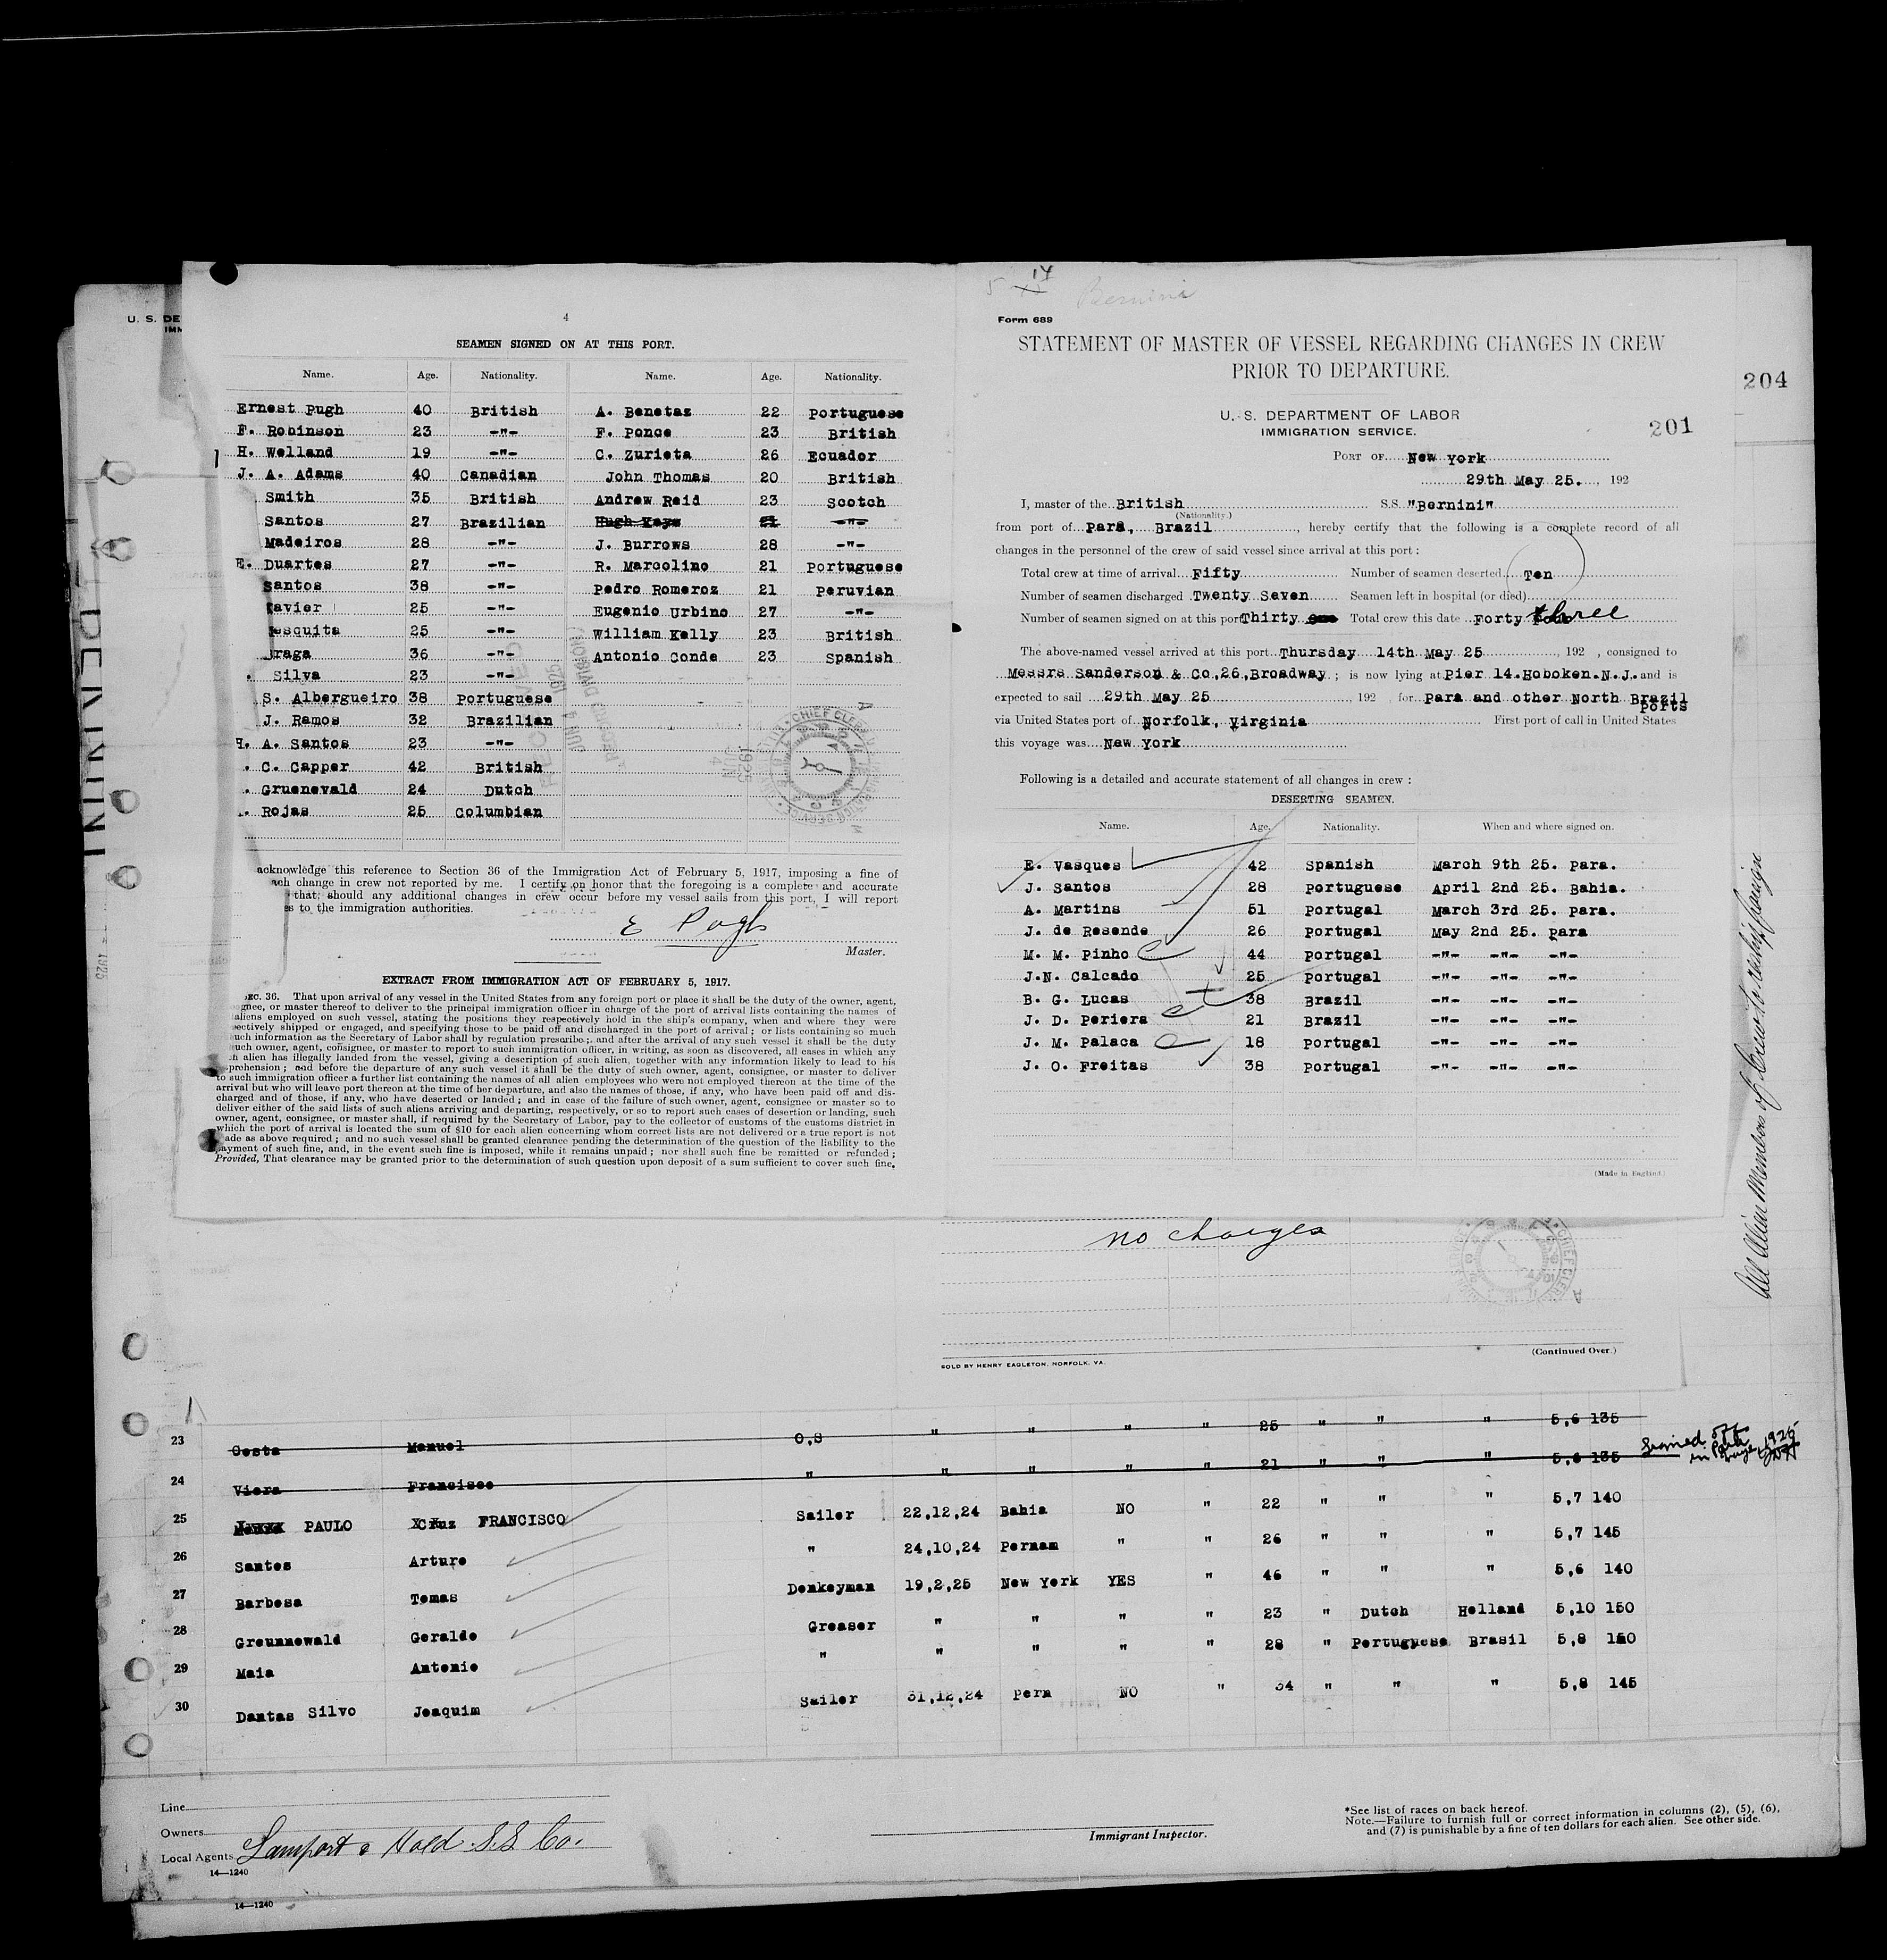 U. S. DE
IMM
4
SEAMEN SIGNED ON AT THIS PORT.
Name. Age. Nationality. Name. Age. Nationality.
Ernest Pugh 40 British A. Benetaz 22 Portuguese
F. Robinson 23 -"- F. Ponce 23 British
H. Welland 19 -"- C. Zurieta 26 Ecuador
J. A. Adams 40 Canadian John Thomas 20 British
Smith 35 British Andrew Reid 23 Scotch
Santos 27 Brazilian Hugh Kays 21 -"-
Madeiros 28 -"- J. Burrows 28 -"-
E. Duartes 27 -"- R. Marcolino 21 Portuguese
Santos 38 -"- Pedro Romeroz 21 Peruvian
avier 25 -"- Eugenio Urbino 27 -"-
esquita 25 -"- William Kelly 23 British
raga 36 -"- Antonio Conde 23 Spanish
. Silva 23 -"-
S. Albergueiro 38 Portuguese
J. Ramos 32 Brazilian
H. A. Santos 23 -"-
. C. Capper 42 British
. Gruenevald 24 Dutch
. Rojas 25 Columbian
acknowledge this reference to Section 36 of the Immigration Act of February 5, 1917, imposing a fine of
ach change in crew not reported by me. I certify on honor that the foregoing is a complete and accurate
that should any additional changes in crew occur before my vessel sails from this port, I will report
es to the immigration authorities.
E Pugh
Master.
EXTRACT FROM IMMIGRATION ACT OF FEBRUARY 5, 1917.
SEC. 36. That upon arrival of any vessel in the United States from any foreign port or place it shall be the duty of the owner, agent,
gnee, or master thereof to deliver to the principal immigration officer in charge of the port of arrival lists containing the names of
aliens employed on such vessel, stating the positions they respectively hold in the ship's company, when and where they were
pectively shipped or engaged, and specifying those to be paid off and discharged in the port of arrival; or lists containing so much
such information as the Secretary of Labor shall by regulation prescribe; and after the arrival of any such vessel it shall be the duty
such owner, agent, consignee, or master to report to such immigration officer, in writing, as soon as discovered, all cases in which any
h alien has illegally landed from the vessel, giving a description of such alien, together with any information likely to lead to his
prehension; and before the departure of any such vessel it shall be the duty of such owner, agent, consignee, or master to deliver
to such immigration officer a further list containing the names of all alien employees who were not employed thereon at the time of the
arrival but who will leave port thereon at the time of her departure, and also the names of those, if any, who have been paid off and dis-
charged and of those, if any, who have deserted or landed; and in case of the failure of such owner, agent, consignee or master so to
deliver either of the said lists of such aliens arriving and departing, respectively, or so to report such cases of desertion or landing, such
owner, agent, consignee, or master shall, if required by the Secretary of Labor, pay to the collector of customs of the customs district in
which the port of arrival is located the sum of $10 for each alien concerning whom correct lists are not delivered or a true report is not
ade as above required; and no such vessel shall be granted clearance pending the determination of the question of the liability to the
payment of such fine, and, in the event such fine is imposed, while it remains unpaid; nor shall such fine be remitted or refunded;
Provided, That clearance may be granted prior to the determination of such question upon deposit of a sum sufficient to cover such fine.
5 14
Bernini
Form 689
STATEMENT OF MASTER OF VESSEL REGARDING CHANGES IN CREW
PRIOR TO DEPARTURE.
204
U. S. DEPARTMENT OF LABOR
IMMIGRATION SERVICE.
201
PORT OF New York
29th May 25. , 192
I, master of the British S.S. "Bernini"
(Nationality.)
from port of Para, Brazil , hereby certify that the following is a complete record of all
changes in the personnel of the crew of said vessel since arrival at this port:
Total crew at time of arrival Fifty Number of seamen deserted Ten
Number of seamen discharged Twenty Seven Seamen left in hospital (or died)
Number of seamen signed on at this port Thirty one Total crew this date Forty four three
The above-named vessel arrived at this port Thursday 14th May 25 , 192 , consigned to
Messrs Sanderson & Co, 26, Broadway ; is now lying at Pier 14. Hoboken. N. J. and is
expected to sail 29th May 25 192 , for Para and other North Brazil
ports
via United States port of Norfolk, Virginia First port of call in United States
this voyage was New York
Following is a detailed and accurate statement of all changes in crew:
DESERTING SEAMEN.
Name. Age. Nationality. When and where signed on.
E. Vasques 42 Spanish March 9th 25. Para.
J. Santos 28 Portuguese April 2nd 25. Bahia.
A. Martins 51 Portugal March 3rd 25. Para.
J. de Resende 26 Portugal May 2nd 25. Para
M. M. Pinho 44 Portugal -"- -"- -"-
J.N. Calcado 25 Portugal -"- -"- -"-
B. G. Lucas 38 Brazil -"- -"- -"-
J. D. Periera 21 Brazil -"- -"- -"-
J. M. Palaca 18 Portugal -"- -"- -"-
J. O. Freitas 38 Portugal -"- -"- -"-
(Made in England.)
All Alien Members of Crew to reship foreign
no changes
SOLD BY HENRY EAGLETON, NORFOLK, VA.
(Continued Over.)
23 Costa Manuel O,S " " " " 25 " " " 5,6 135
24 Viera Francisco " " " " " 21 " " " 5,6 135
25 PAULO Cruz FRANCISCO Sailor 22,12,24 Bahia NO " 22 " " " 5,7 140
26 Santos Arturo " 24,10,24 Pernam " " 26 " " " 5,7 145
27 Barbosa Tomas Donkeyman 19,2,25 New York YES " 46 " " " 5,6 140
28 Greunnewald Geralde Greaser " " " " 23 " Dutch Holland 5,10 150
29 Maia Antonio " " " " " 28 " Portuguese Brasil 5,8 150
30 Dantas Silvo Joaquim Sailor 31,12,24 Pern NO " 34 " " " 5,8 145
Line
Owners
Local Agents Lamport & Hold S.S. Co.
14—1240
Immigrant Inspector.
*See list of races on back hereof.
Note.—Failure to furnish full or correct information in columns (2), (5), (6),
and (7) is punishable by a fine of ten dollars for each alien. See other side.
14—1240